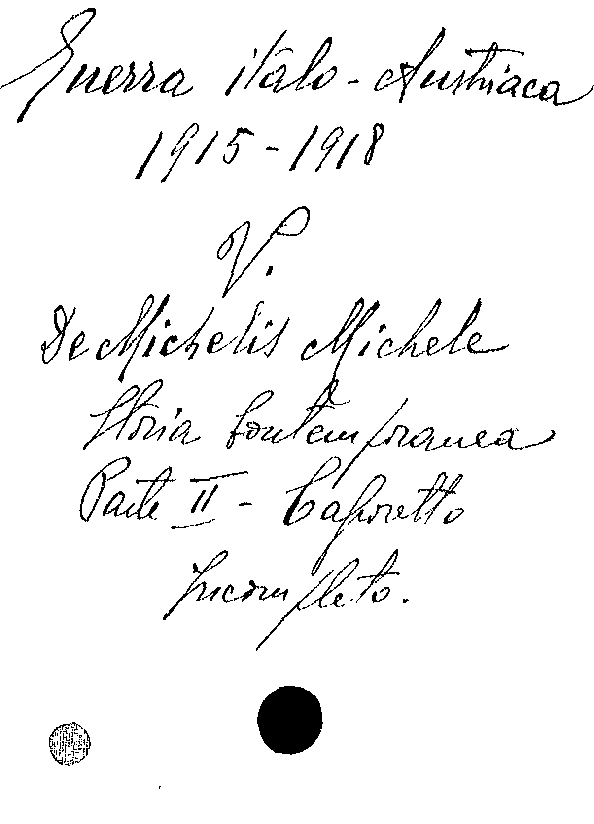 Guerra italo-Austriaca
1915-1918
V.
De Michelis Michele
Storia Contemporanea
Parte II - Caporetto
Incompleto.